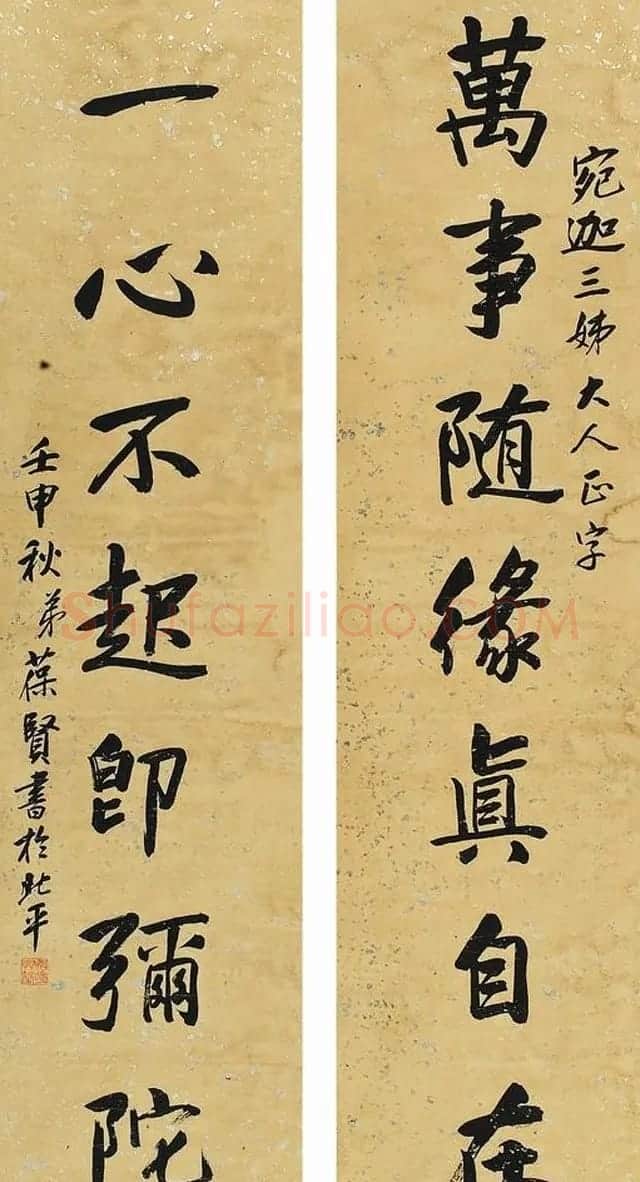 宛迦三姊大人正字
萬事隨緣眞自在
一心不起即彌陀
壬申秋弟葆賢書於北平
Shufaziliao.COM